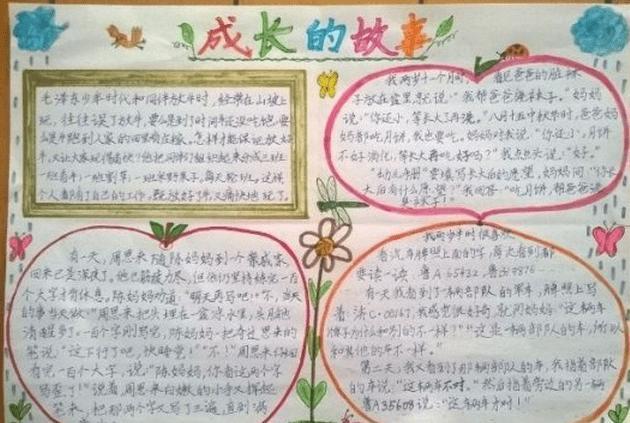 成长的故事
毛泽东少年时代和同伴放牛时，经常在山坡上
玩，往往误了放牛，要么是到了时间还没吃饱，要
么是牛跑到人家的田里偷庄稼。怎样才能保证放好
牛，又让大家玩得痛快？他把同伴们组织起来分成三班
一班看牛，一班割草，一班采野果子，每天轮班。这样
个人都有了自己的工作，既放好了牛，又痛快地玩了。
我两岁十个月时，看见爸爸的脏袜
子放在盆里，就说："我帮爸爸洗袜子。"妈妈
说，"你还小，等长大了再洗。"八月十五中秋节时，爸爸妈
妈都吃月饼，我也要吃。妈妈对我说，"你还小，月饼
不好消化，等长大再吃，好吗？"我点点头说，"好。"
幼儿手册要填写长大后的愿望，妈妈问，"你长
大后有什么愿望？"我回答，"吃月饼，帮爸爸洗
臭袜子！"
有一天，周恩来随陈妈妈到一个亲戚家，
回来已是深夜了。他已筋疲力尽，但仍坚持练完一百
个大字才肯休息。陈妈妈劝道："明天再写吧！""不，当天
的事当天做！"周恩来把头埋在一盆冷水里，头脑
清醒多了。一百个字刚写完，陈妈妈一把夺过恩来的
笔说，"这下行了吧，快睡觉！""不！"周恩来仔细
看完一百个大字，说，"陈妈妈，你看这两个字
写歪了！"说着，周恩来白嫩的小手又挥起
笔来，把那两个字又写了三遍，直到满
我两岁半时很喜欢
看汽车牌照上面的字，每天看到都
要读一读，鲁A 65432，鲁
有一天我看到了一辆部队的军车，牌照上写
着：济C·00167，我感觉很好奇，就问妈妈："这辆车
牌子为什么和别的不一样？""这是一辆部队的车，所以
和其他的车不一样。"
第二天，我又看到了那辆部队的车，我指着部队
的车说，"这辆车不对。"然后指着旁边的另一辆
鲁A35608说："这辆车才对！"